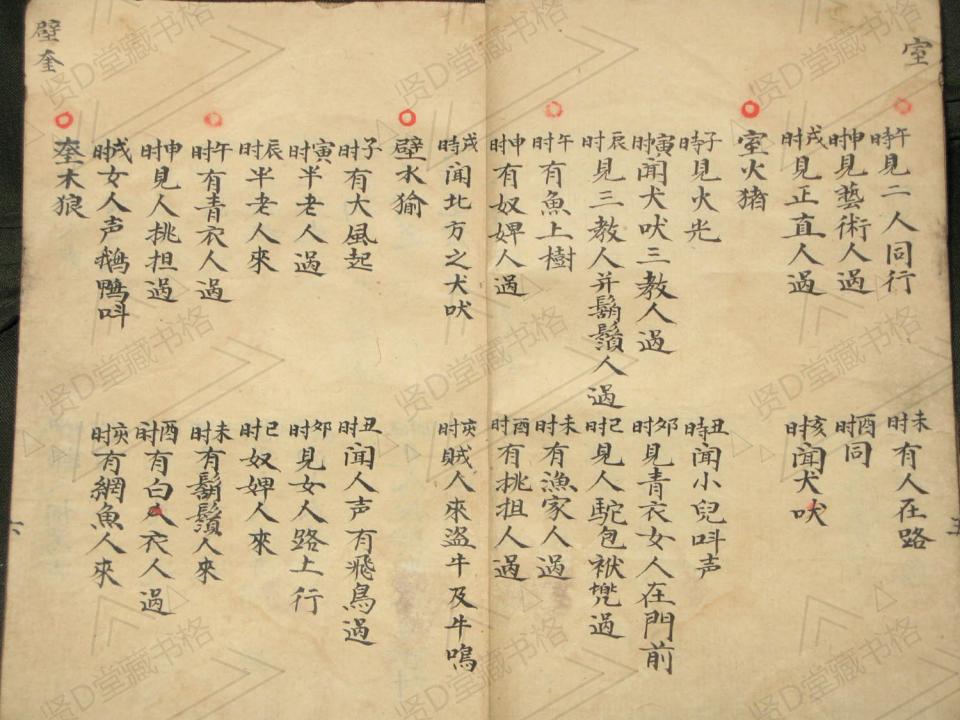 室
午時見二人同行
未时有人在路
申时見藝術人過
酉时同
戌时見正直人過
亥时聞犬吠
室火猪
子時見火光
丑時聞小兒呌声
寅时聞犬吠三教人過
夘时見青衣女人在門前
辰时見三教人并鬍鬚人過
巳时見人駝包袱攬過
午时有魚上樹
未时有漁家人過
申时有奴婢人過
酉时有挑担人過
戌時聞北方之犬吠
亥时賊人來盜牛及牛鳴
五
壁奎
壁水㺄
子时有大風起
丑时聞人声有飛鳥過
寅时半老人過
夘时見女人路上行
辰时半老人來
巳时奴婢人來
午时有青衣人過
未时有鬍鬚人來
申时見人挑担過
酉时有白衣人過
戌时女人声鵝鴨呌
亥时有網魚人來
奎木狼
六
贤D堂藏书格